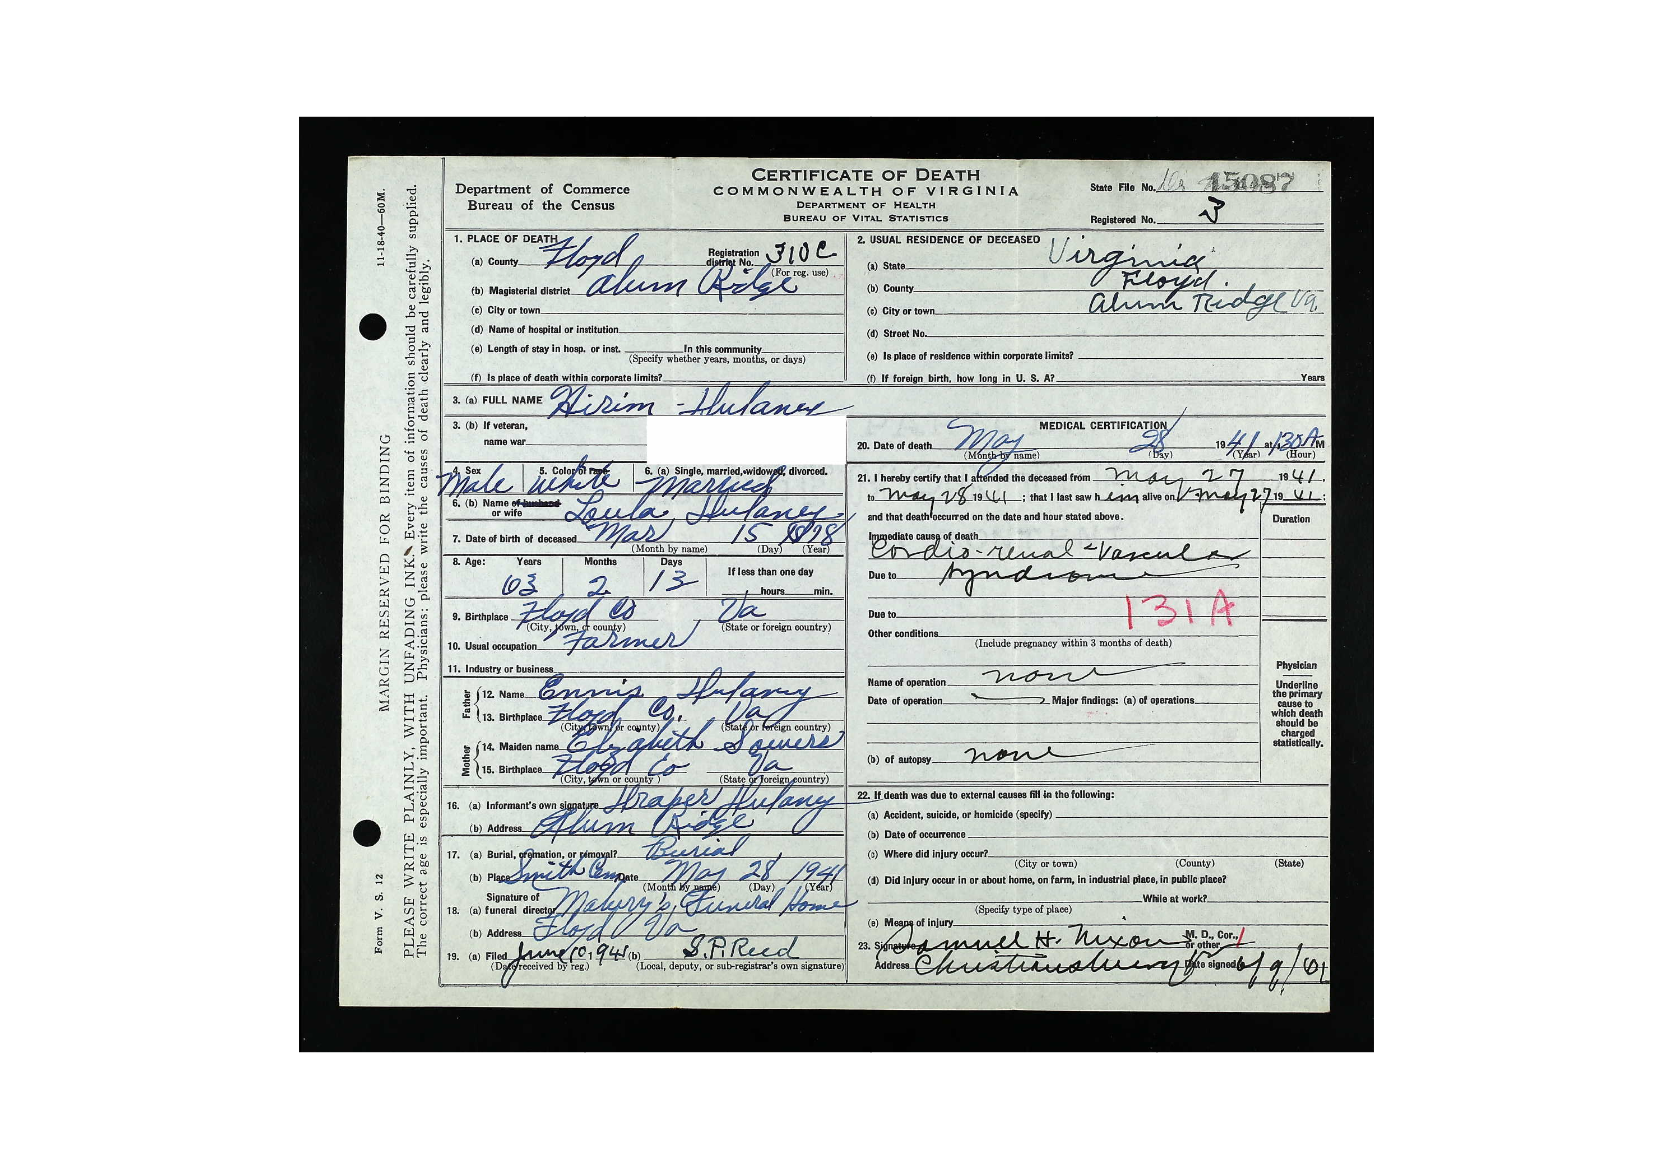 CERTIFICATE OF DEATH
COMMONWEALTH OF VIRGINIA
DEPARTMENT OF HEALTH
BUREAU OF VITAL STATISTICS
Department of Commerce
Bureau of the Census
State File No. 15087
Registered No. 3
11-18-40—60M.
MARGIN RESERVED FOR BINDING
PLEASE WRITE PLAINLY, WITH UNFADING INK. Every item of information should be carefully supplied.
The correct age is especially important. Physicians: please write the causes of death clearly and legibly.
Form V. S. 12
1. PLACE OF DEATH
(a) County Floyd Registration district No. 310C
(For reg. use)
(b) Magisterial district Alum Ridge
(c) City or town
(d) Name of hospital or institution
(e) Length of stay in hosp. or inst. In this community
(Specify whether years, months, or days)
(f) Is place of death within corporate limits?
2. USUAL RESIDENCE OF DECEASED
(a) State Virginia
(b) County Floyd.
(c) City or town Alum Ridge Va.
(d) Street No.
(e) Is place of residence within corporate limits?
(f) If foreign birth, how long in U. S. A? Years
3. (a) FULL NAME Hirim Hulaney
3. (b) If veteran,
name war
4. Sex 5. Color or race 6. (a) Single, married, widowed, divorced.
Male White Married
6. (b) Name of husband or wife Loula Hulaney
7. Date of birth of deceased Mar 15 1878
(Month by name) (Day) (Year)
8. Age: Years Months Days If less than one day
63 2 13 hours min.
9. Birthplace Floyd Co Va
(City, town, or county) (State or foreign country)
10. Usual occupation Farmer
11. Industry or business
Father
12. Name Ennis Hulaney
13. Birthplace Floyd Co, Va
(City, town, or county) (State or foreign country)
Mother
14. Maiden name Elizabeth Sowers
15. Birthplace Floyd Co Va
(City, town or county) (State or foreign country)
16. (a) Informant's own signature Draper Hulaney
(b) Address Alum Ridge
17. (a) Burial, cremation, or removal? Burial
(b) Place Smith Cem Date May 28 1941
(Month by name) (Day) (Year)
Signature of
18. (a) funeral director Maberry's Funeral Home
(b) Address Floyd Va
19. (a) Filed June 10 1941 (b) S.P. Reed
(Date received by reg.) (Local, deputy, or sub-registrar's own signature)
MEDICAL CERTIFICATION
20. Date of death May 28 1941 at 130 A M
(Month by name) (Day) (Year) (Hour)
21. I hereby certify that I attended the deceased from May 27 1941.
to May 28 1941; that I last saw him alive on May 27 1941;
and that death occurred on the date and hour stated above.
Duration
Immediate cause of death
Cardio-renal-Vascular
Due to Syndrome
131A
Due to
Other conditions
(Include pregnancy within 3 months of death)
Name of operation none
Date of operation Major findings: (a) of operations
(b) of autopsy none
Physician
Underline
the primary
cause to
which death
should be
charged
statistically.
22. If death was due to external causes fill in the following:
(a) Accident, suicide, or homicide (specify)
(b) Date of occurrence
(c) Where did injury occur?
(City or town) (County) (State)
(d) Did injury occur in or about home, on farm, in industrial place, in public place?
While at work?
(Specify type of place)
(e) Means of injury
23. Signature Samuel H. Nixon M. D., Cor., or other
Address Christiansburg Date signed 6/9/41